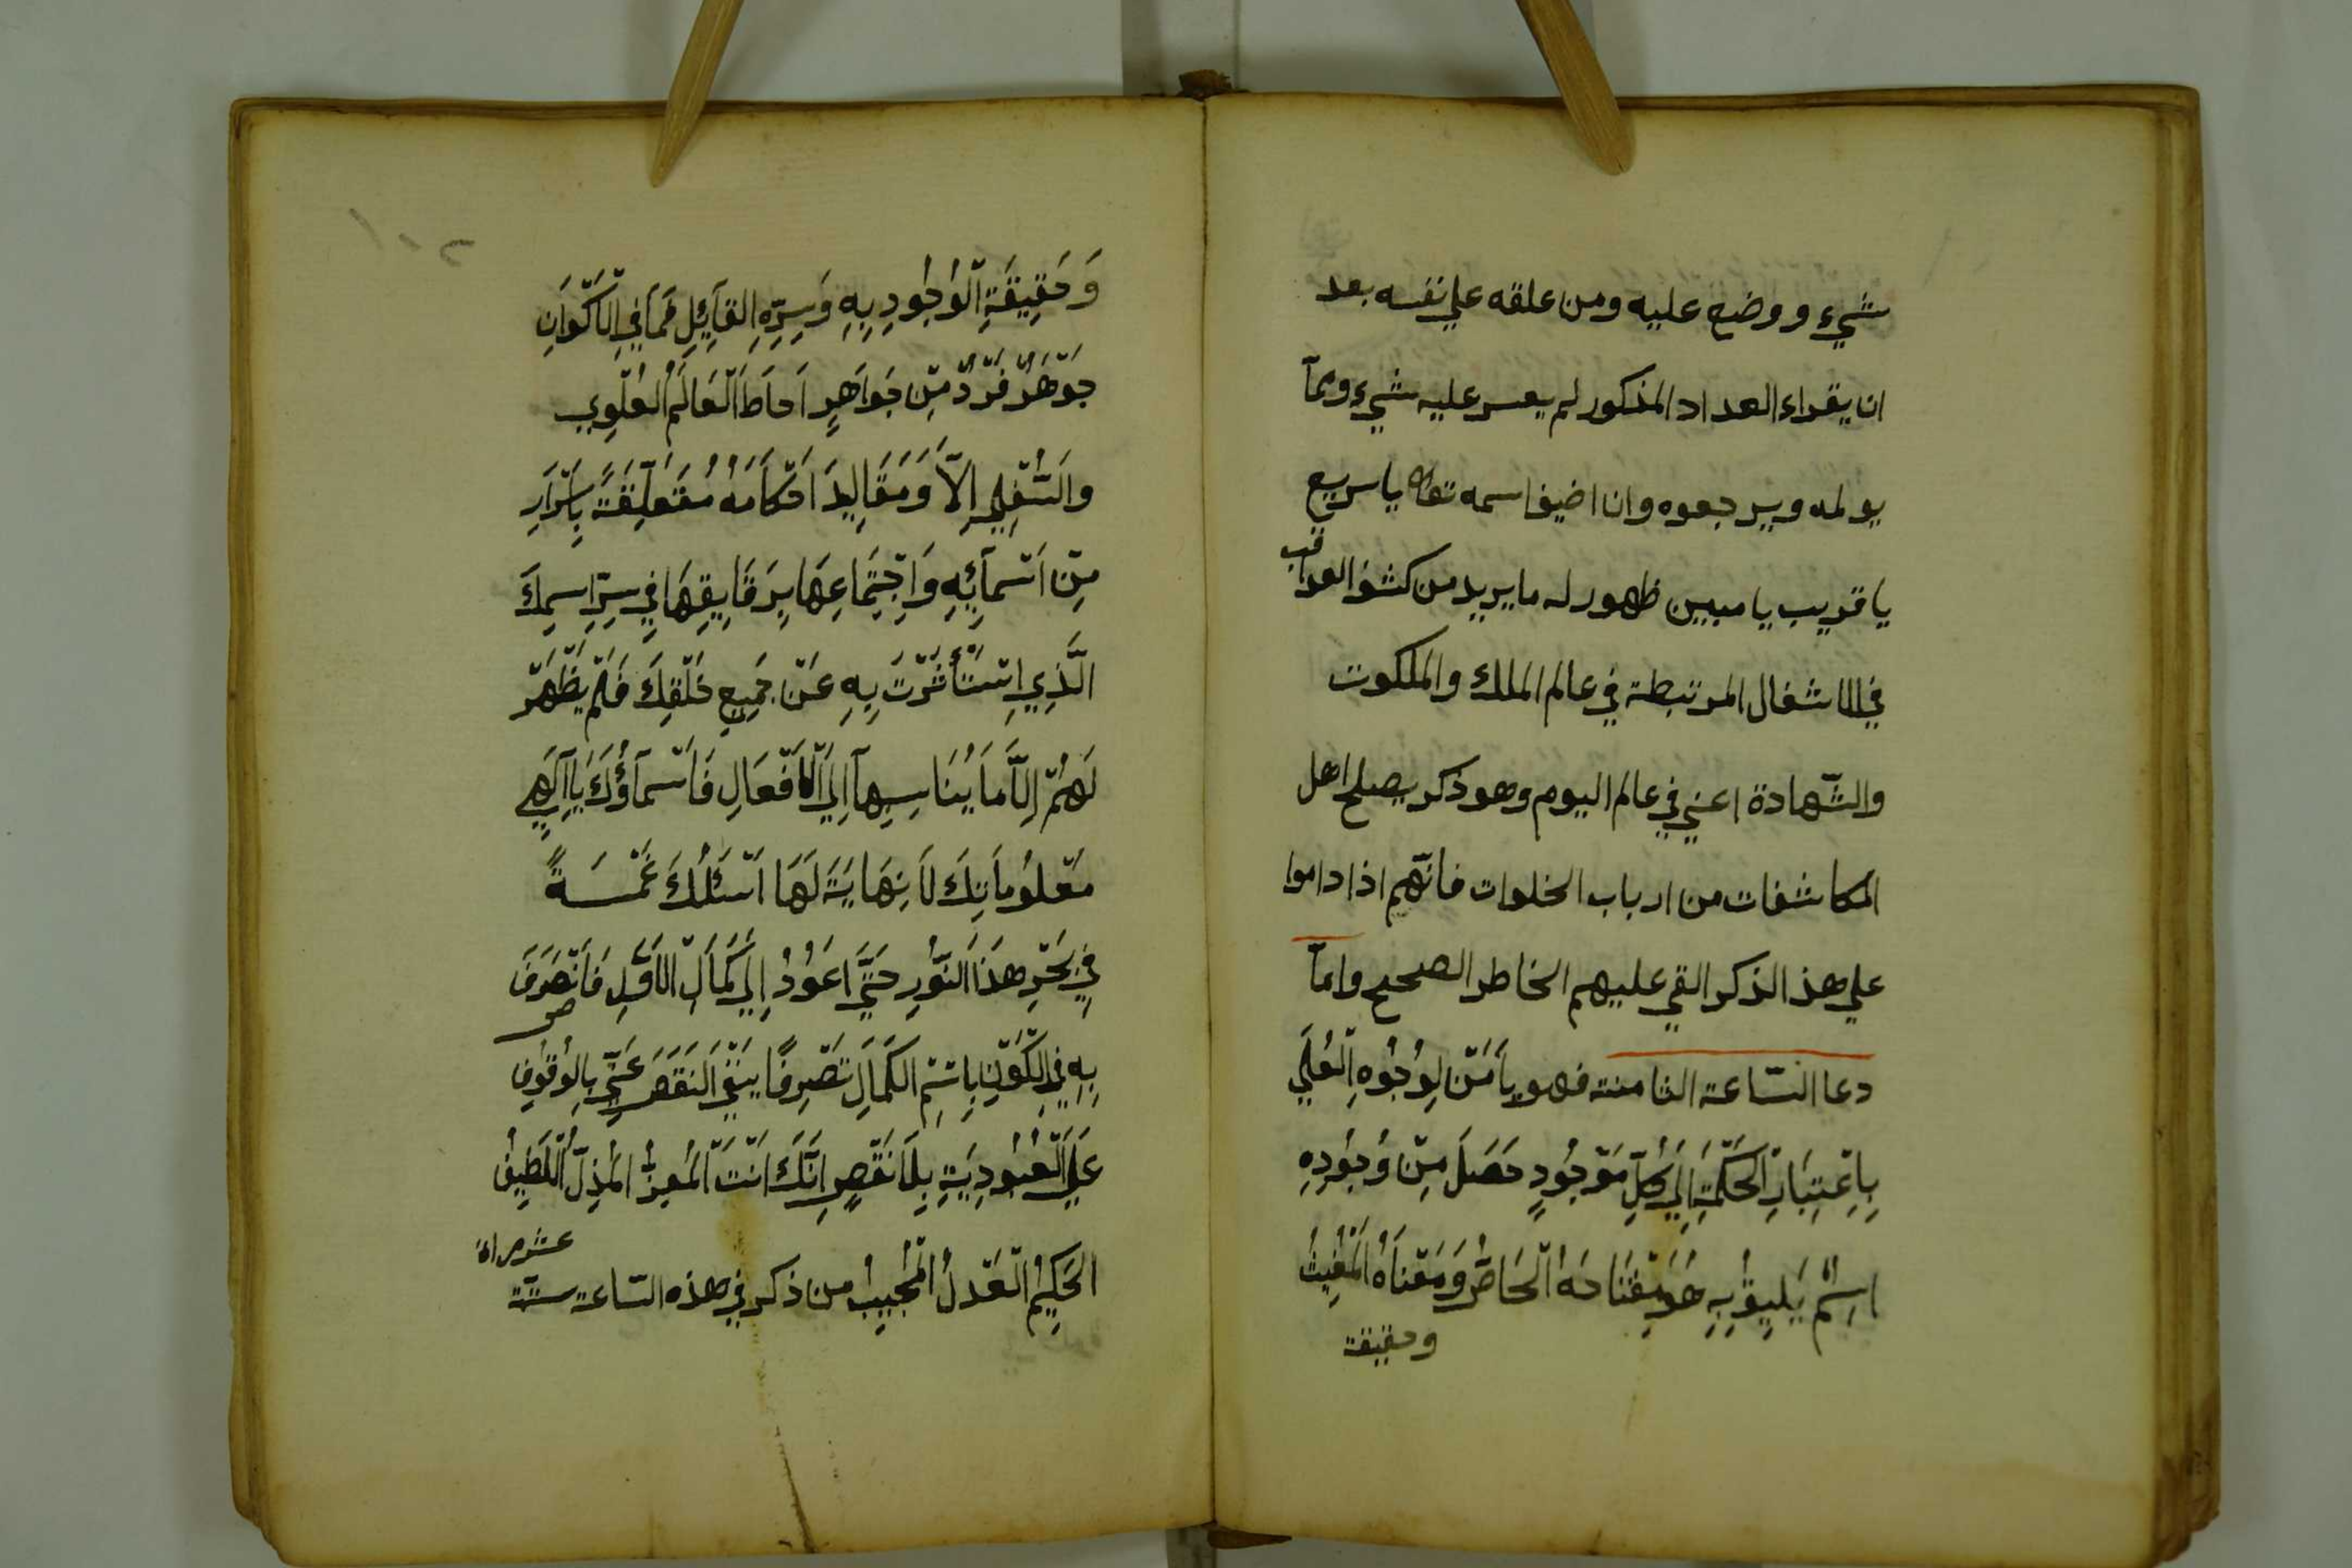 شيء ووضع عليه ومن علقه علي نفسه بعد
ان يقراء العداد المذكور لم يعسر عليه شيء ومما
يولمه ويرجعوه وان اضيف اسمه تعالى يا سريع
يا قريب يا مبين ظهور له ما يريد من كشف العواقب
في الاشغال المرتبطة في عالم الملك والملكوت
والشّهادة اعني في عالم اليوم وهو ذكر يصلح اهل
المكاشفات من ارباب الخلوات فانّهم اذا داموا
علي هذ الذكر القي عليهم الخاطر الصحيح وامّا
دعا السّاعة الثامنة فهو يَا مَنْ لِوُجُوهِ الْعُلَي
بِاِعْتِبَارِ الْحَكْمَةِ اِلَي كُلِّ مَوْجُودٍ حَصَلَ مِنْ وُجُودِهِ
اِسْمٌ يَلِيقُ بِهِ هُوَ مِفْتَاحَهُ الْخَاصُّ وَمَعْنَاهُ الْمُغِيثُ
وحقيقة
وَحَقِيقَةِ الْوُجُودِ بِهِ وَسِرِّهِ القَآئِلِ فَمَا فِي الْاَكْوَانِ
جَوْهَرٌ فَرْدٌ مِنْ جَوَاهِرِ اَحَاطَ الْعَالَمُ الْعُلْوِي
وَالسُّفْلِي اِلَّا وَمَقَالِيدَ اَحْكَامَهُ مُتَعَلِّقَةً بِاَسْرَارِ
مِنْ اَسْمآئِهِ وَاِجْتِمَاعِهَا بِرَقَايِقِهَا فِي سِرِّ اسِمِكَ
الَّذِي اِسْتَأْثَرْتَ بِهِ عَنْ جَمِيعِ خَلْقِكَ فَلَمْ يَظْهَرْ
لَهُمْ اِلَّا مَا يُنَاسِبهآ اِلَي الْاَفْعَالِ فَاَسْمآؤُكَ يَا اِلَهِي
مَعْلُومَاتِكَ لَا نِهَايَةَ لَهَا اَسْئَلُكَ غَمْسَةً
فِي بَحْرِ هَذَا النُّورِ حَتَّي اَعُودُ اِلَي كَمَالِ الْاَوَّلِ فَاَتَصَرَفَ
بِهِ فِي الْكَوْنِ بِاسْمِ الْكَمَالِ تَصْرِفًا يَنْفَي النَقَصَ عَنِّي بِالْوُقُوفِ
عَلَي الْعُبُودِيَةِ بِلَا نَقْصٍ اِنَّكَ اَنْتَ الْمُعِزُّ الْمُذِلُّ اللَّطِيفُ
الحَكِيمُ الْعَدْلُ الْمُجِيبُ من ذكر في هذه السّاعة ستة
عشر مراة